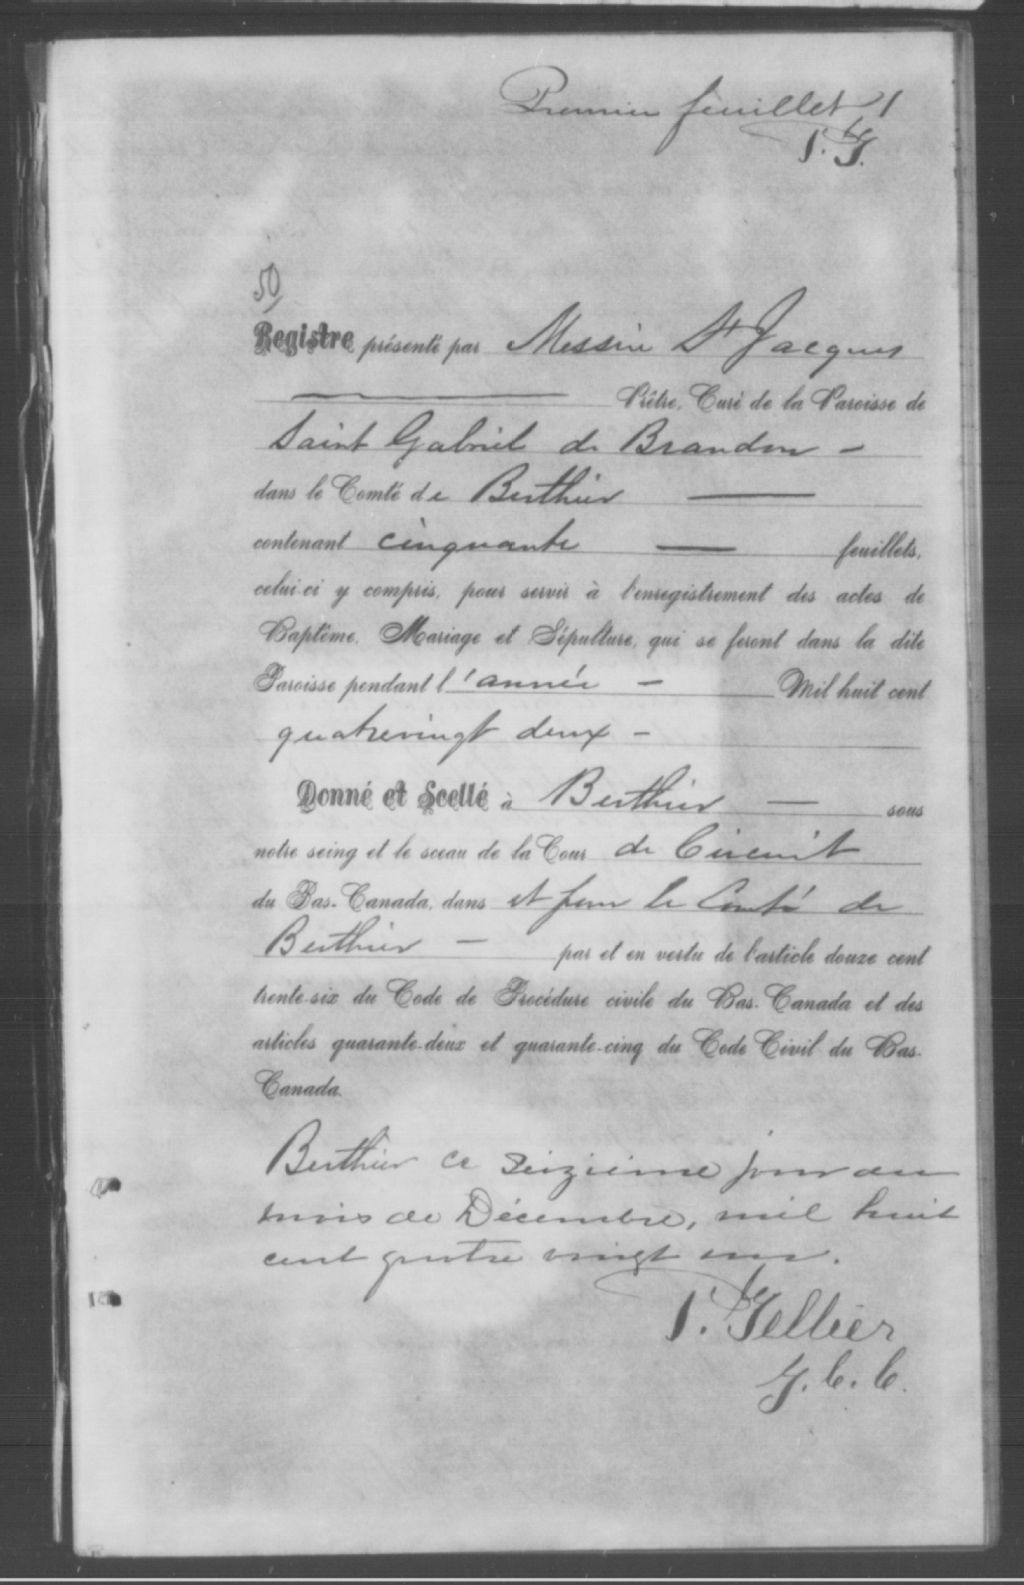 Premier feuillet 1
P. T.
50
Registre présenté par Messire St Jacques
Prêtre, Curé de la Paroisse de
Saint Gabriel de Brandon –
dans le Comté de Berthier —
contenant cinquante — feuillets,
celui-ci y compris, pour servir à l'enregistrement des actes de
Baptême, Mariage et Sépulture, qui se feront dans la dite
Paroisse pendant l'année – Mil huit cent
quatrevingt deux –
Donné et Scellé à Berthier — sous
notre seing et le sceau de la Cour de Circuit
du Bas-Canada, dans et pour le Comté de
Berthier – par et en vertu de l'article douze cent
trente-six du Code de Procédure civile du Bas-Canada et des
articles quarante-deux et quarante-cinq du Code Civil du Bas-
Canada.
Berthier ce seizième jour du
mois de Décembre, mil huit
cent quatre vingt un.
P. Tellier
G. C. C.